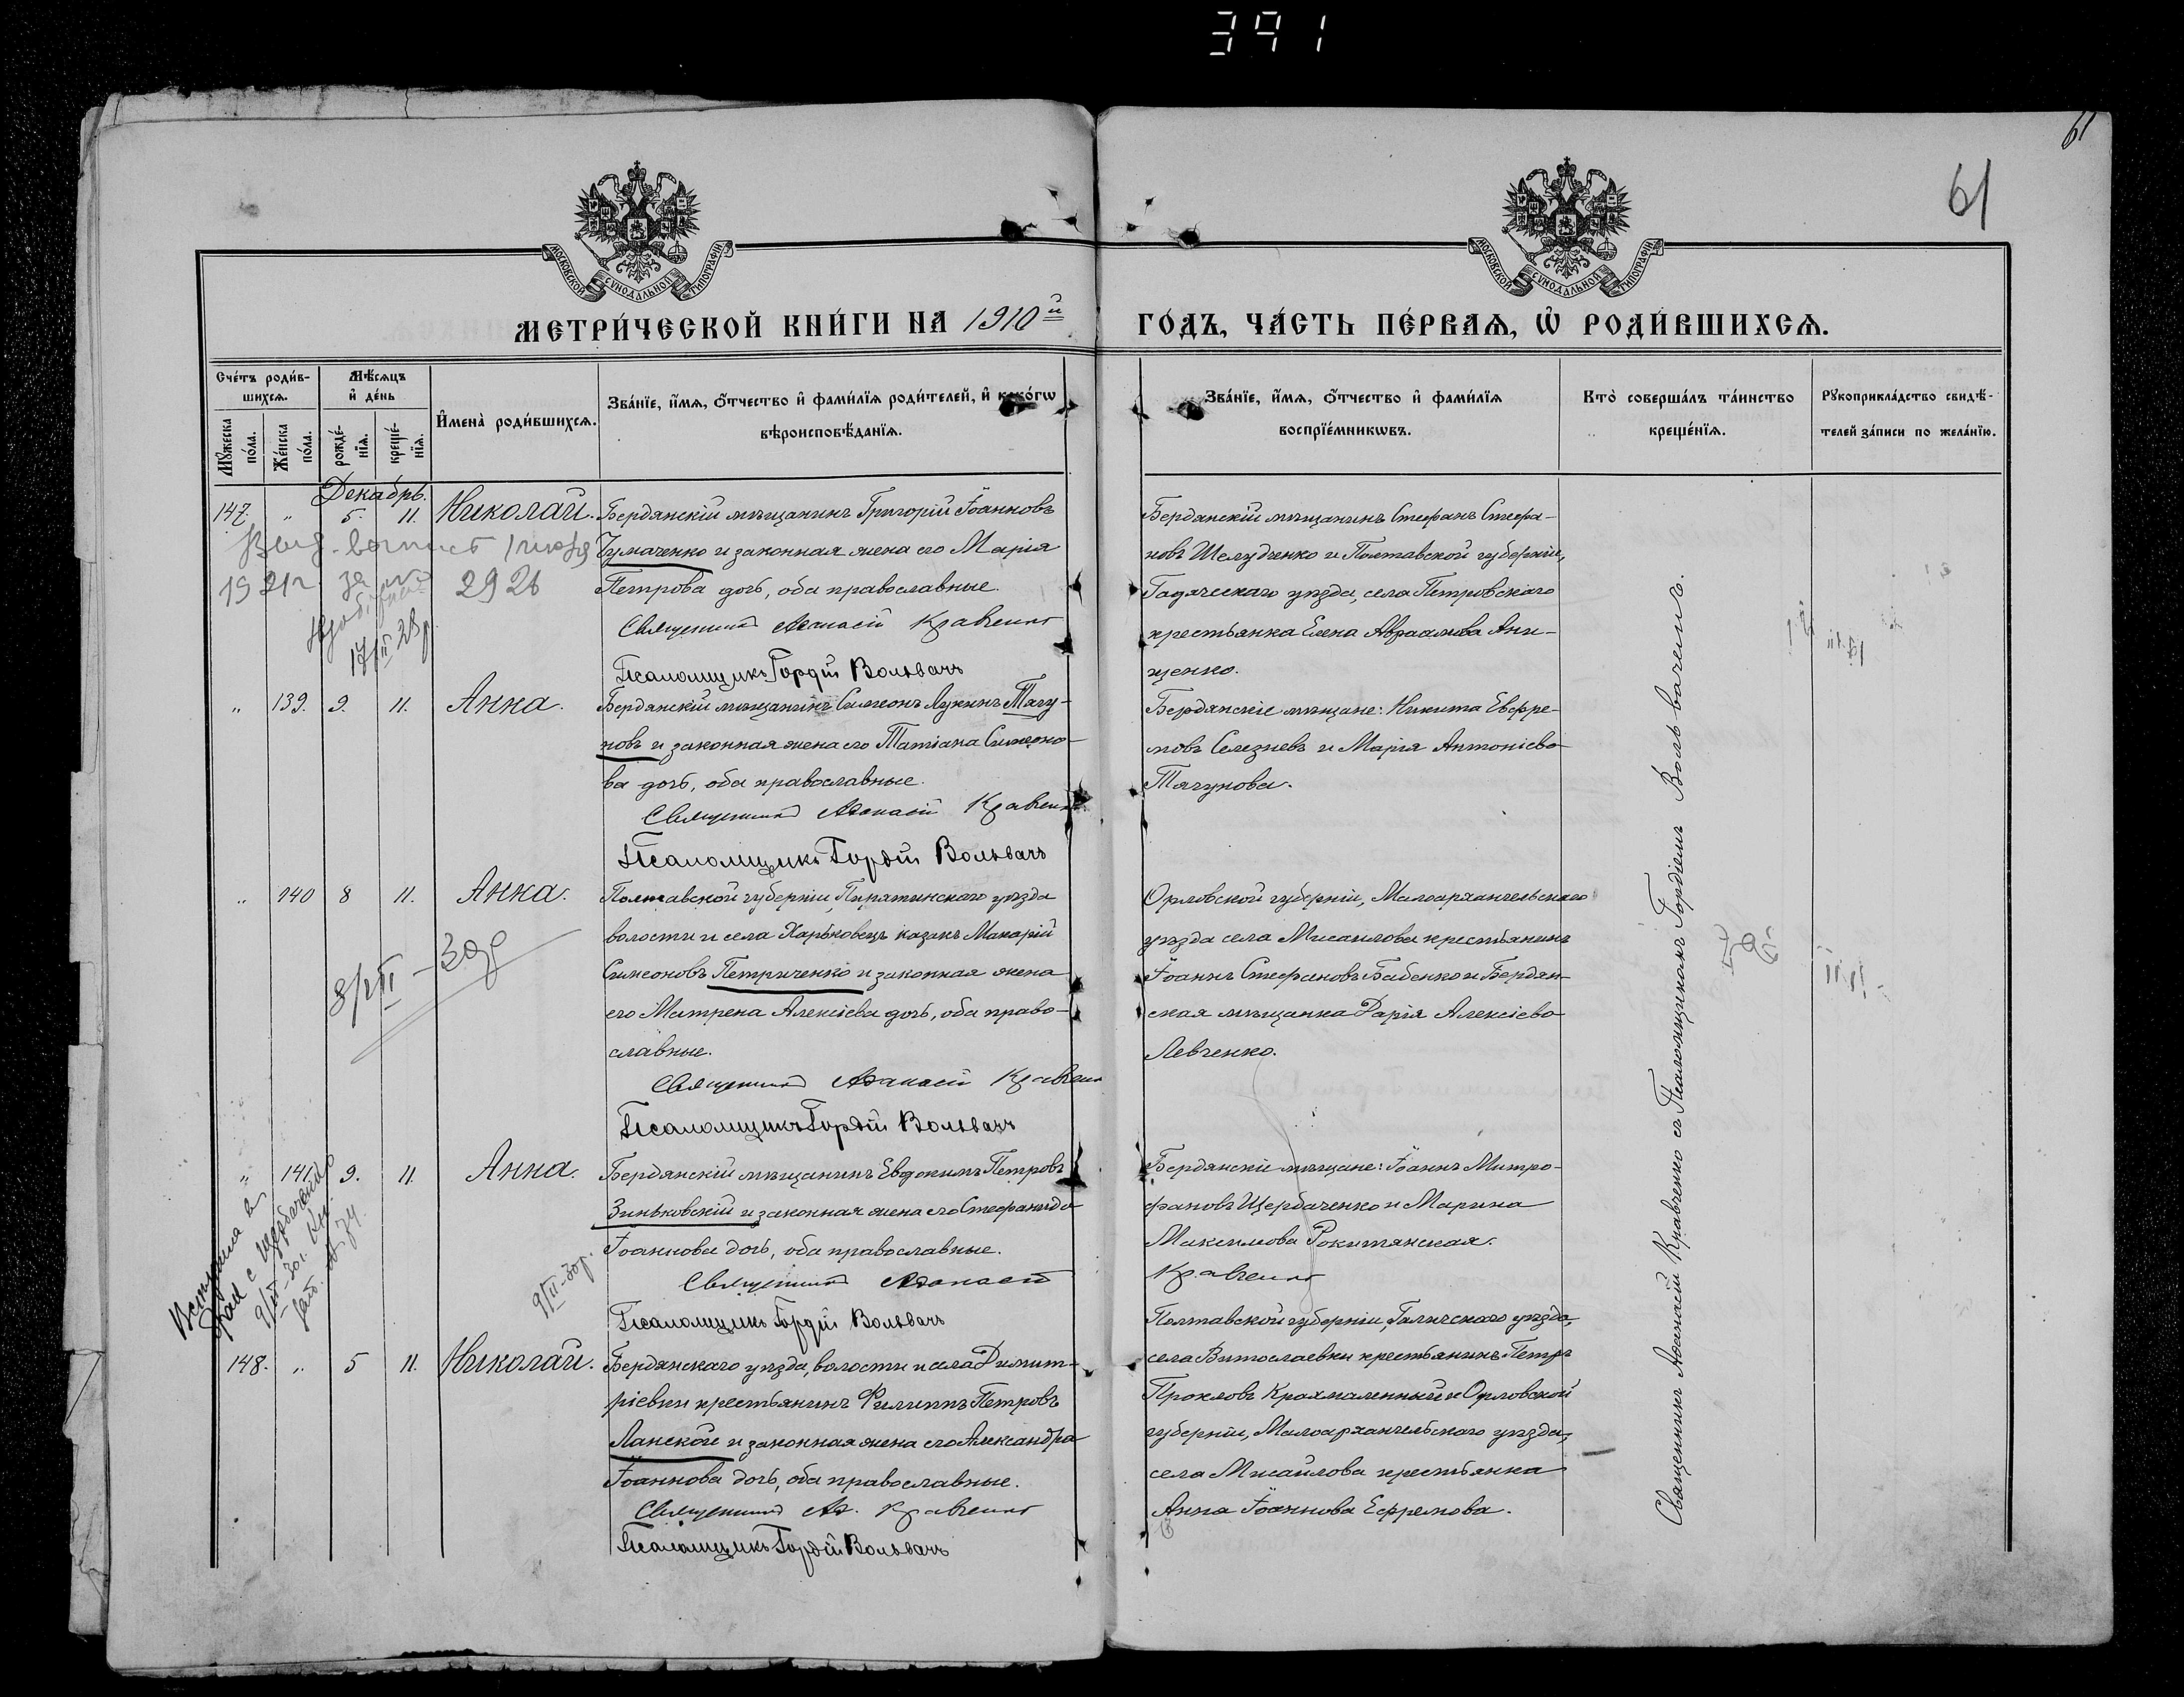 391
61
61
МОСКОВСКОЙ СѴНОДАЛЬНОЙ ТИПОГРАФІИ
МОСКОВСКОЙ СѴНОДАЛЬНОЙ ТИПОГРАФІИ
МЕТРИ́ЧЕСКОЙ КНИ́ГИ НА 1910й
ГО́ДЪ, ЧА́СТЬ ПЕ́РВАѦ, Ѽ РОДИ́ВШИХСѦ.
Сче́тъ роди́в-
шихсѧ.
Мѣ́сѧцъ
и҆ де́нь
Мꙋ́жеска по́ла.
Же́нска по́ла.
рожде́-
нїѧ.
креще́-
нїѧ.
И҆мена̀ роди́вшихсѧ.
Зва́нїе, и҆́мѧ, ѻ҆́тчество и҆ фами́лїѧ роди́телей, и҆ како́гѡ
вѣроисповѣ́данїѧ.
Зва́нїе, и҆́мѧ, ѻ҆́тчество и҆ фами́лїѧ
воспрїе́мникѡвъ.
Кто̀ соверша́лъ та́инство
креще́нїѧ.
Рꙋкоприкла́дство свидѣ́-
телей за́писи по жела́нїю.
Декабрь.
147. " 5. 11. Николай.
Бердянскій мѣщанинъ Григорій Іоанновъ
Чумаченко и законная жена его Марія
Петрова дочь, оба православные.
Священникъ Аѳанасій Кравченко
Псаломщикъ Гордій Вольвачъ
1921г. за № 2926
17/II 28 р.
Бердянскій мѣщанинъ Стефанъ Стефа-
новъ Шелудченко и Полтавской губерніи,
Гадячскаго уѣзда, села Петровскаго
крестьянка Елена Авраамова Они-
щенко.
" 139. 9. 11. Анна.
Бердянскій мѣщанинъ Симеонъ Лукинъ Тягу-
новъ и законная жена его Татіана Симеоно-
ва дочь, оба православные.
Священникъ Аѳанасій Кравченко
Псаломщикъ Гордій Вольвачъ
Бердянскіе мѣщане: Никита Евфре-
мовъ Селезневъ и Марія Антоніева
Тягунова.
" 140 8 11. Анна.
Полтавской губерніи, Пирятинскаго уѣзда
волости и села Харьковецъ казакъ Макарій
Симеоновъ Петриченко и законная жена
его Матрена Алексіева дочь, оба право-
славные.
Священникъ Аѳанасій Кравченко
Псаломщикъ Гордій Вольвачъ
Орловской губерніи, Малоархангельскаго
уѣзда села Мисаилова крестьянинъ
Іоаннъ Стефановъ Бабенко и Бердян-
ская мѣщанка Дарія Алексіева
Левченко.
" 141. 9. 11. Анна.
Бердянскій мѣщанинъ Евдокимъ Петровъ
Зиньковскій и законная жена его Стефанида
Іоаннова дочь, оба православные.
Священникъ Аѳанасій
Кравченко
Псаломщикъ Гордій Вольвачъ
Вступила в
брак с Щербачен
9/II-30р.
Бердянскіе мѣщане: Іоаннъ Митро-
фановъ Щербаченко и Марина
Максимова Рокитянская.
148. " 5 11. Николай.
Бердянскаго уѣзда, волости и села Димит-
ріевки крестьянинъ Филиппъ Петровъ
Ланской и законная жена его Александра
Іоаннова дочь, оба православные.
Священникъ Аѳ. Кравченко
Псаломщикъ Гордій Вольвачъ
Полтавской губерніи, уѣзда,
села крестьянинъ Петръ
Прокловъ Крахмаленный и Орловской
губерніи, Малоархангельскаго уѣзда,
села Мисаилова крестьянка
Анна Іоаннова Ефремова.
Священникъ Аѳанасій Кравченко съ Псаломщикомъ Гордіемъ Вольвачемъ.